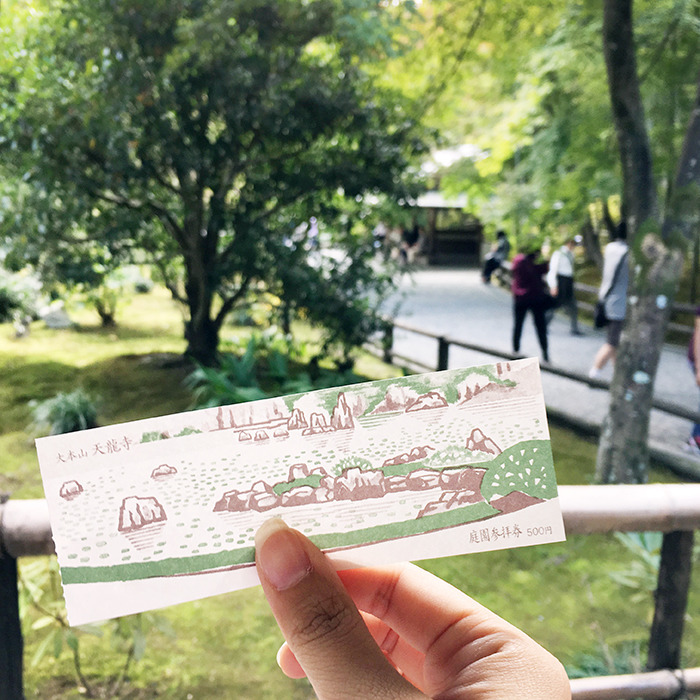 大本山 天龍寺
庭園参拝券 500円